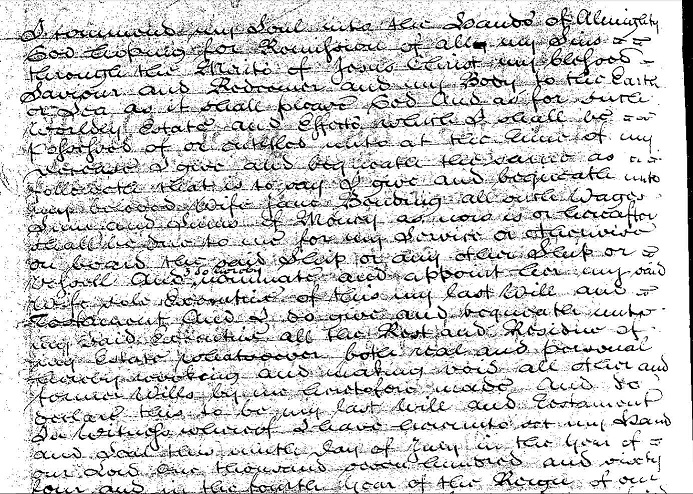 I commend my Soul into the Hands of Almighty
God hoping for Remission of all my Sins
through the Merits of Jesus Christ my blessed
Saviour and Redeemer and my Body to the Earth
or Sea as it shall please God And as for such
Worldly Estate and Effects which I shall be
possessed of or entitled unto at the time of my
decease I give and bequeath the same as
followeth that is to say I give and bequeath unto
my beloved Wife Jane Bonding all such Wages
Sum and Sums of Money as now is or hereafter
shall be due to me for my Service or otherwise
on board the said Ship or any other Ship or
Vessell And I do hereby nominate and appoint her my said
Wife sole Executrix of this my last Will and
Testament And I do give and bequeath unto
my said Executrix all the Rest and Residue of
my Estate whatsoever both real and personal
hereby revoking and making void all other and
former Wills by me heretofore made And do
declare this to be my last Will and Testament
In Witness whereof I have hereunto set my Hand
and Seal this ninth day of July in the Year of
our Lord One thousand seven hundred and sixty
four and in the fourth Year of the Reign of our